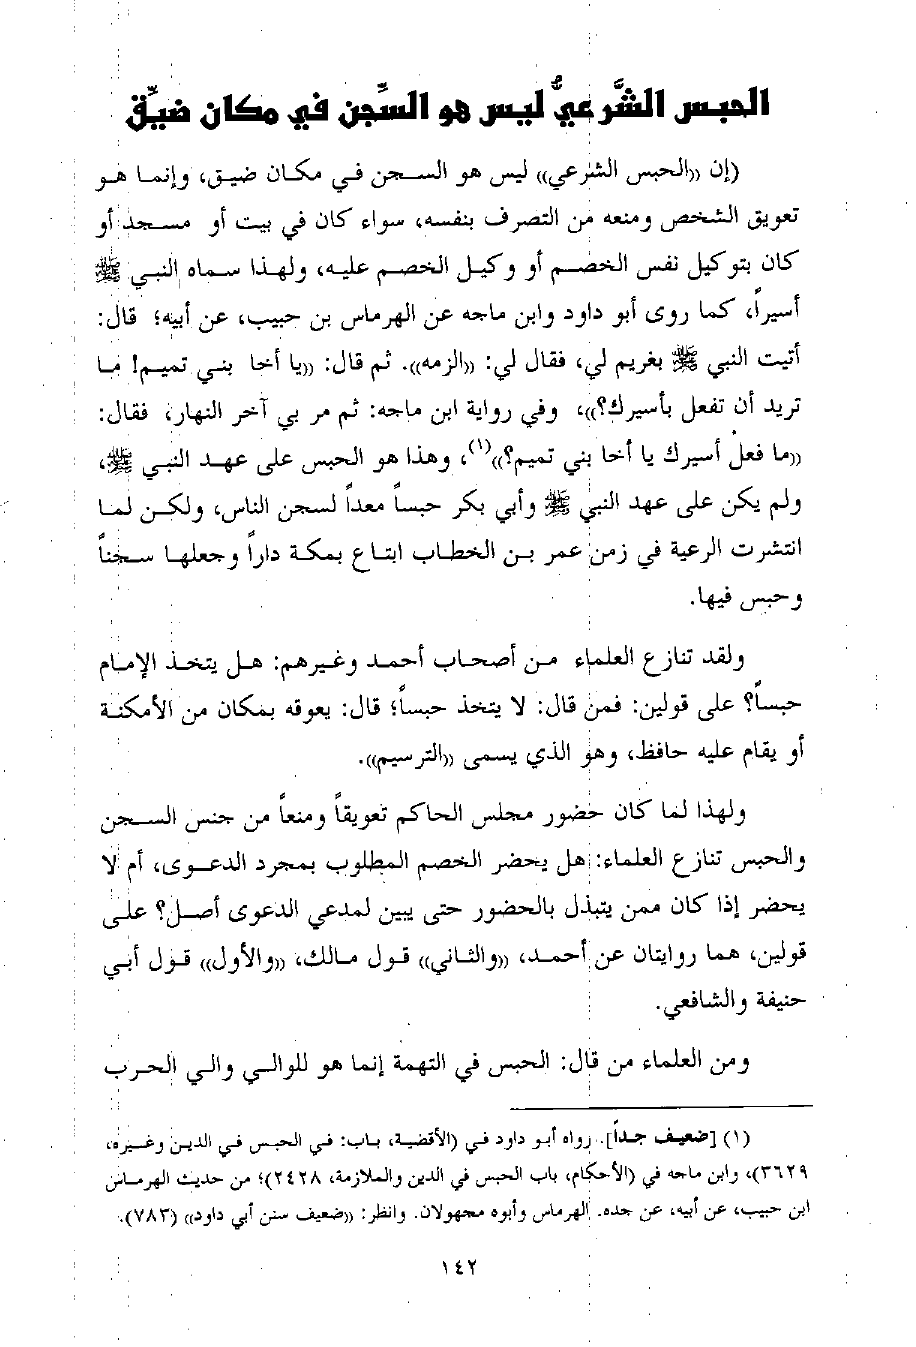 الحبس الشَّرعيُّ ليس هو السِّجن في مكان ضيِّق
(إن ((الحبس الشرعي)) ليس هو السجن في مكان ضيق، وإنما هو
تعويق الشخص ومنعه من التصرف بنفسه، سواء كان في بيت أو مسجد أو
كان بتوكيل نفس الخصم أو وكيل الخصم عليه، ولهذا سماه النبي ﷺ
أسيراً، كما روى أبو داود وابن ماجه عن الهرماس بن حبيب، عن أبيه؛ قال:
أتيت النبي ﷺ بغريم لي، فقال لي: ((الزمه)). ثم قال: ((يا أخا بني تميم! ما
تريد أن تفعل بأسيرك؟))، وفي رواية ابن ماجه: ثم مر بي آخر النهار، فقال:
((ما فعل أسيرك يا أخا بني تميم؟))(١)، وهذا هو الحبس على عهد النبي ﷺ،
ولم يكن على عهد النبي ﷺ وأبي بكر حبساً معداً لسجن الناس، ولكن لما
انتشرت الرعية في زمن عمر بن الخطاب ابتاع بمكة داراً وجعلها سجناً
وحبس فيها.
ولقد تنازع العلماء من أصحاب أحمد وغيرهم: هل يتخذ الإمام
حبساً؟ على قولين: فمن قال: لا يتخذ حبساً؛ قال: يعوقه بمكان من الأمكنة
أو يقام عليه حافظ، وهو الذي يسمى ((الترسيم)).
ولهذا لما كان حضور مجلس الحاكم تعويقاً ومنعاً من جنس السجن
والحبس تنازع العلماء: هل يحضر الخصم المطلوب بمجرد الدعوى، أم لا
يحضر إذا كان ممن يتبذل بالحضور حتى يبين لمدعي الدعوى أصل؟ على
قولين، هما روايتان عن أحمد، ((والثاني)) قول مالك، ((والأول)) قول أبي
حنيفة والشافعي.
ومن العلماء من قال: الحبس في التهمة إنما هو للوالي والي الحرب
(١) [ضعيف جداً]. رواه أبو داود في (الأقضية، باب: في الحبس في الدين وغيره،
٣٦٢٩)، وابن ماجه في (الأحكام، باب الحبس في الدين والملازمة، ٢٤٢٨)؛ من حديث الهرماس
ابن حبيب، عن أبيه، عن جده. الهرماس وأبوه مجهولان. وانظر: ((ضعيف سنن أبي داود)) (٧٨٣).
١٤٢